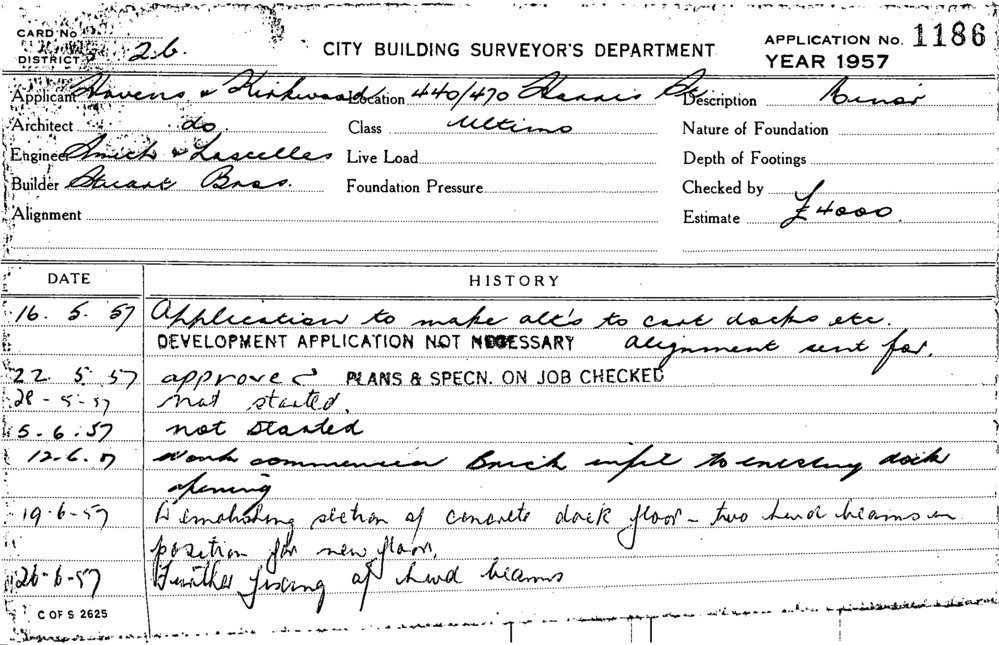 CARD No
DISTRICT 26.
CITY BUILDING SURVEYOR'S DEPARTMENT
APPLICATION No. 1186
YEAR 1957
Applicant Havens & Kirkwood Location 440/470 Harris St Description Minor
Architect do. Class Ultimo Nature of Foundation
Engineer Smith & Lascelles Live Load Depth of Footings
Builder Stuart Bros. Foundation Pressure Checked by
Alignment Estimate £4000.
DATE HISTORY
16. 5. 57 Application to make alt's to cart docks etc.
DEVELOPMENT APPLICATION NOT NECESSARY Alignment sent for.
22 5 57 approved PLANS & SPECN. ON JOB CHECKED
28-5-57 Not started.
5-6.57 not started
12-6.57 Work commenced Brick infil to existing dock
opening
19-6-57 Demolishing section of concrete dock floor - two hwd beams in
position for new floor.
26-6-57 Further fixing of hwd beams
C OF S 2625